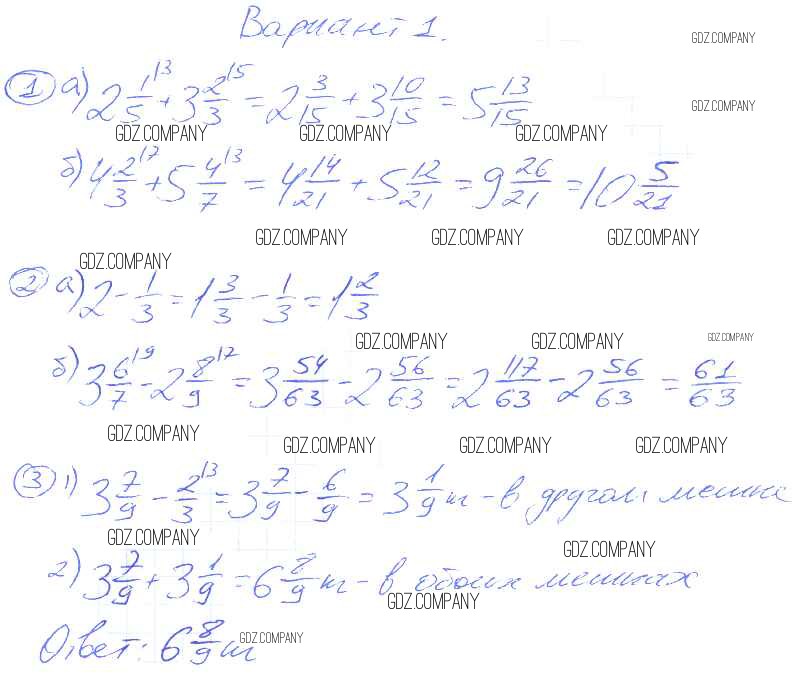 Вариант 1.
GDZ.COMPANY
① а) 2 1/5 |3 + 3 2/3 |5 = 2 3/15 + 3 10/15 = 5 13/15
GDZ.COMPANY
GDZ.COMPANY GDZ.COMPANY GDZ.COMPANY
б) 4 2/3 |7 + 5 4/7 |3 = 4 14/21 + 5 12/21 = 9 26/21 = 10 5/21
GDZ.COMPANY GDZ.COMPANY GDZ.COMPANY
GDZ.COMPANY
② а) 2 - 1/3 = 1 3/3 - 1/3 = 1 2/3
GDZ.COMPANY GDZ.COMPANY GDZ.COMPANY
б) 3 6/7 |9 - 2 8/9 |7 = 3 54/63 - 2 56/63 = 2 117/63 - 2 56/63 = 61/63
GDZ.COMPANY GDZ.COMPANY GDZ.COMPANY GDZ.COMPANY
③ 1) 3 7/9 - 2/3 |3 = 3 7/9 - 6/9 = 3 1/9 кг - в другом мешке
GDZ.COMPANY GDZ.COMPANY
2) 3 7/9 + 3 1/9 = 6 8/9 кг - в обоих мешках
GDZ.COMPANY
Ответ: 6 8/9 кг
GDZ.COMPANY